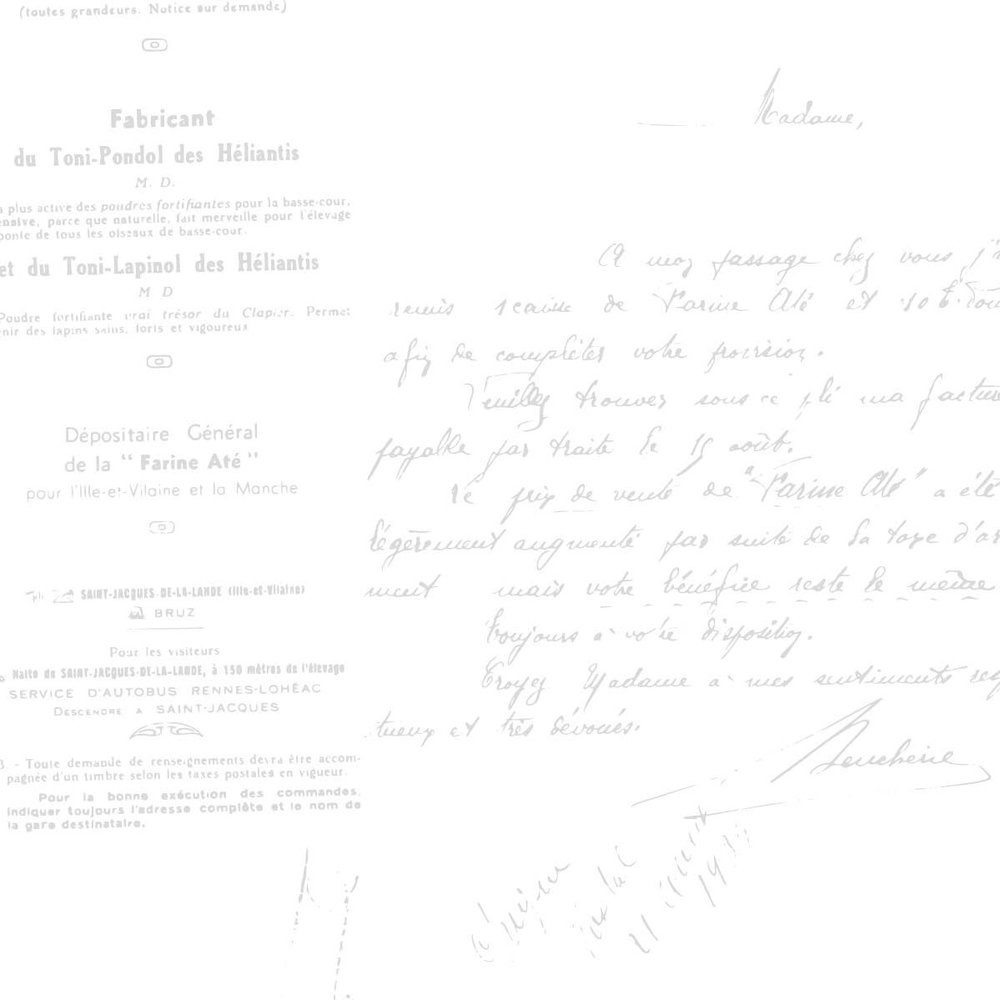 (toutes grandeurs. Notice sur demande)
Fabricant
du Toni-Pondol des Héliantis
M. D.
plus active des poudres fortifiantes pour la basse-cour,
ensive, parce que naturelle, fait merveille pour l'élevage
ponte de tous les oiseaux de basse-cour.
et du Toni-Lapinol des Héliantis
M D
Poudre fortifiante vrai trésor du Clapier. Permet
nir des lapins sains, forts et vigoureux
Dépositaire Général
de la " Farine Até "
pour l'Ille-et-Vilaine et la Manche
SAINT-JACQUES-DE-LA-LANDE (Ille-et-Vilaine)
BRUZ
Pour les visiteurs
Halte de SAINT-JACQUES-DE-LA-LANDE, à 150 mètres de l'élevage
SERVICE D'AUTOBUS RENNES-LOHÉAC
DESCENDRE A SAINT-JACQUES
B. - Toute demande de renseignements devra être accom-
pagnée d'un timbre selon les taxes postales en vigueur.
Pour la bonne exécution des commandes,
indiquer toujours l'adresse complète et le nom de
la gare destinataire.
Madame,
A mon passage chez vous j'
remis 1 caisse de Farine Até et 10 b.
afin de complèter votre provision.
Veuillez trouver sous ce pli ma factur
payable par traite le 15 août.
Le prix de vente de "Farine Até" a été
légèrement augmenté par suite de la taxe d'ar
ment mais votre bénéfice reste le même
Toujours à votre disposition.
Croyez Madame à mes sentiments resp
tueux et très dévoués.
Beucherie
21